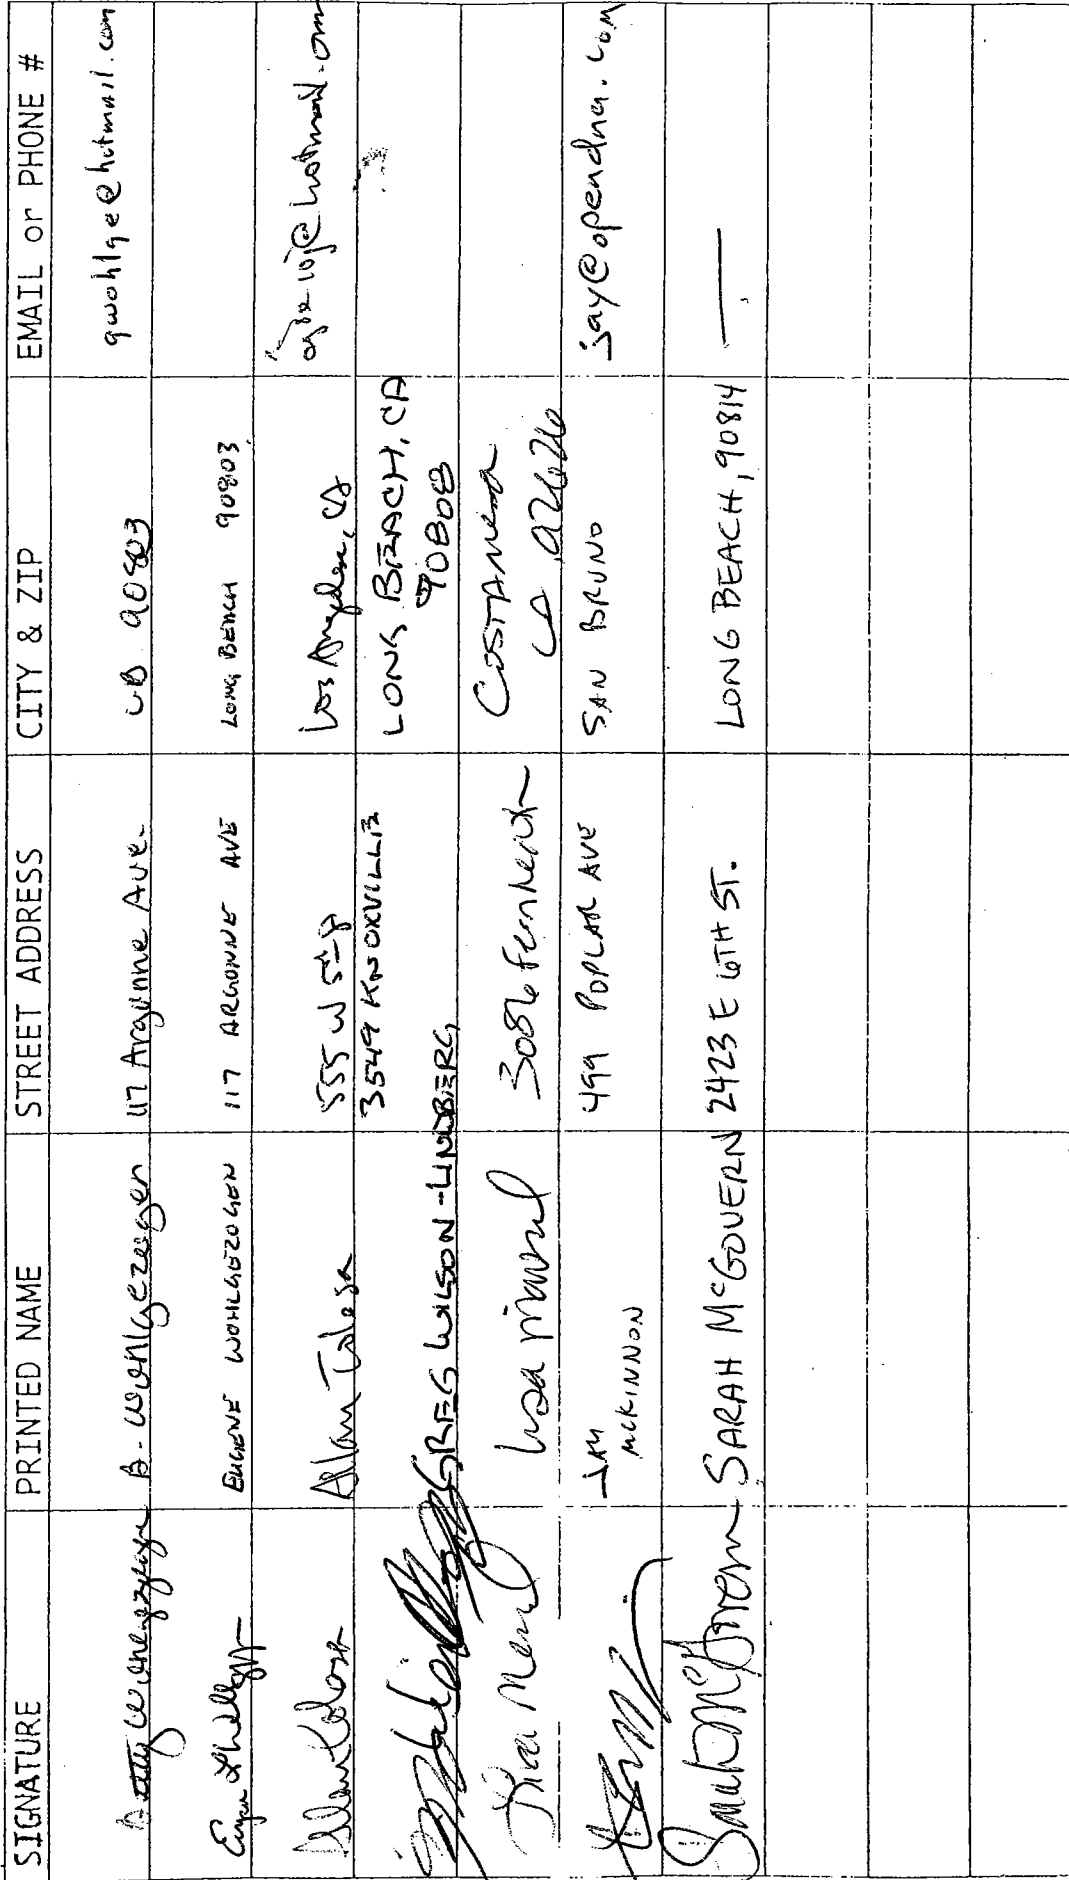 SIGNATURE PRINTED NAME STREET ADDRESS CITY & ZIP EMAIL or PHONE #
B. Wohlgezogen 117 Argonne Ave. LB 90803 gwohlge@hotmail.com
EUGENE WOHLGEZOGEN 117 ARGONNE AVE LONG BEACH 90803
Allan Tolosa 555 W 5th Los Angeles, CA @hotmail.com
GREG WILSON-LINDBERG 3549 KNOXVILLE LONG BEACH, CA
90808
Lisa 3086 Fernheath COSTA MESA
CA 92626
JAY
MCKINNON 499 POPLAR AVE SAN BRUNO jay@opendna.com
Sarah McGovern SARAH McGOVERN 2423 E 6TH ST. LONG BEACH, 90814 —